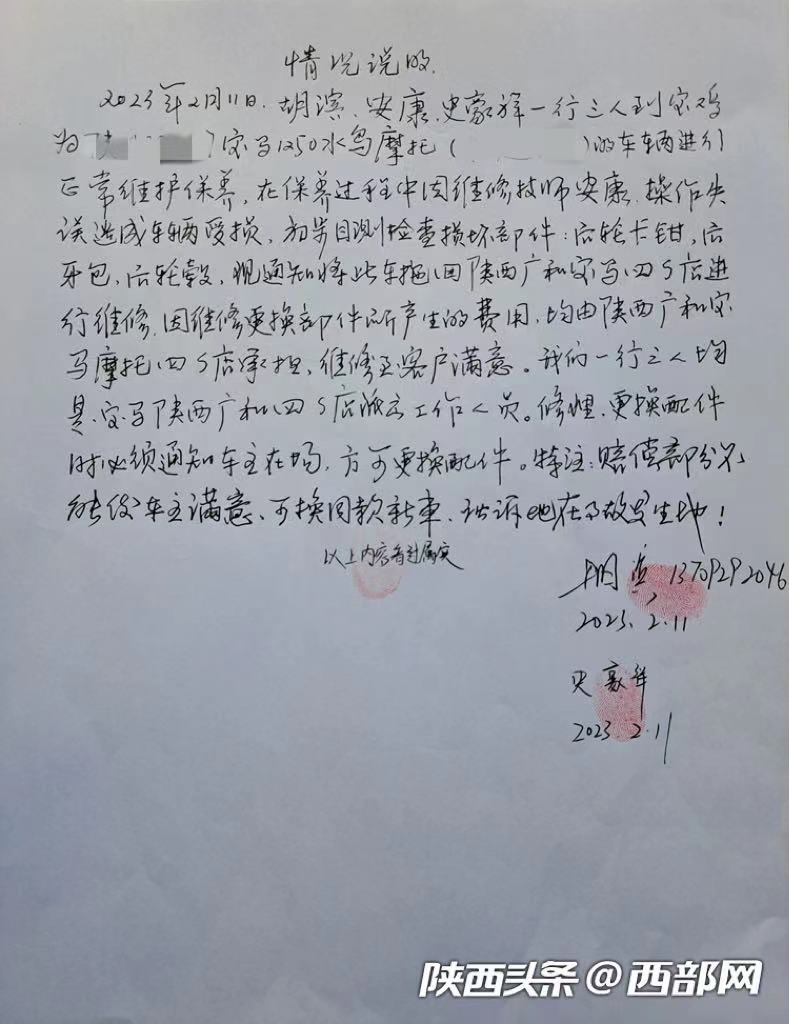 情况说明
2023年2月11日.胡滨、安康、史豪祥一行三人到宝鸡
为 宝马1250水鸟摩托( )的车辆进行
正常维护保养,在保养过程中因维修技师安康,操作失
误造成车辆受损,初步目测检查损坏部件:后轮卡钳,后
牙包,后轮毂,现通知将此车拖回陕西广和宝马四S店进
行维修.因维修更换部件所产生的费用,均由陕西广和宝
马摩托四S店承担,维修至客户满意。我们一行三人均
是宝马陕西广和四S店派出工作人员。修理,更换配件
时必须通知车主在场,方可更换配件。特注:赔偿部分不
能使车主满意、可换同款新車.诉讼地在事故发生地!
以上内容看过属实
胡滨 13709292046
2023.2.11
史豪祥
2023.2.11
陕西头条@西部网